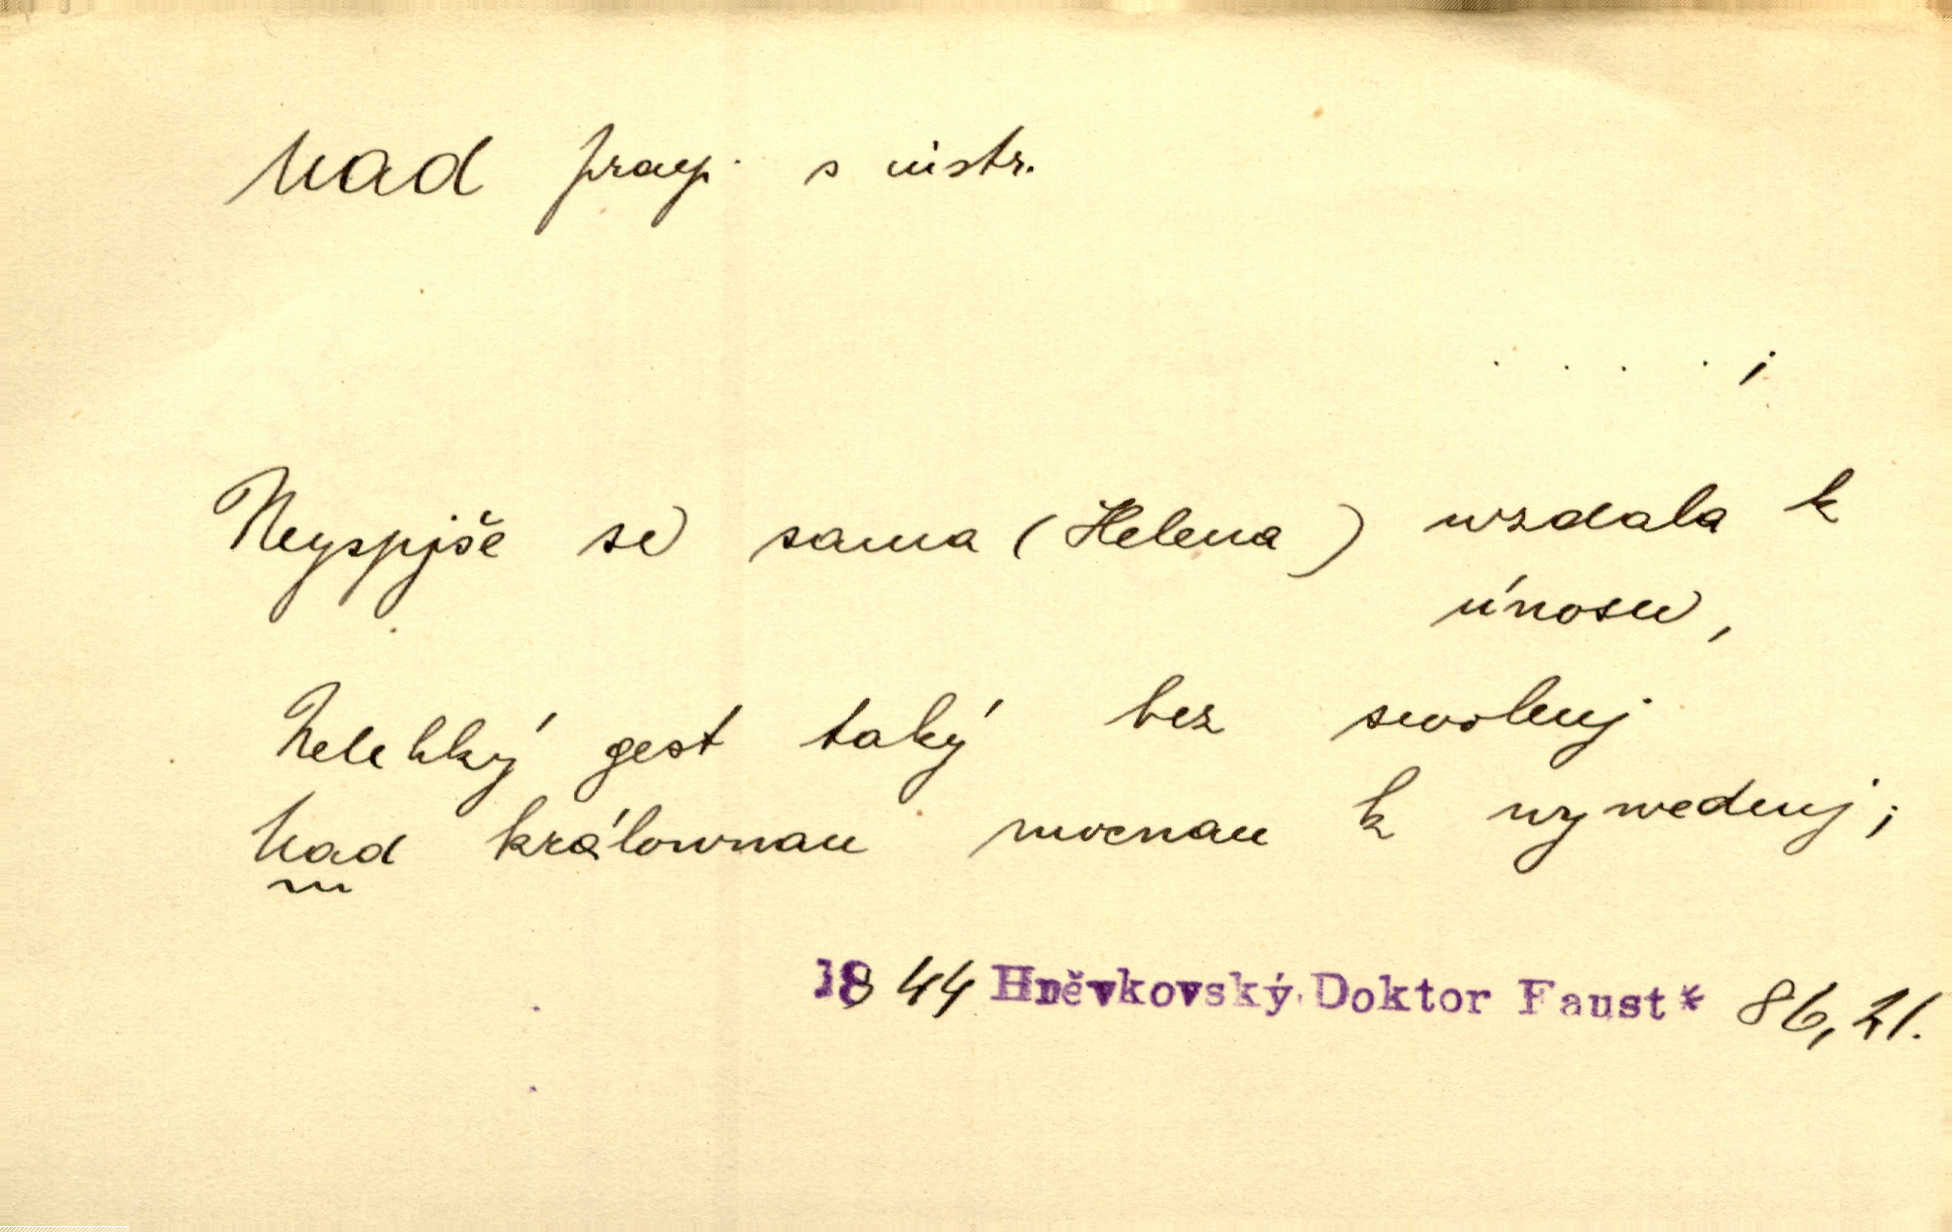 nad praep. s instr.
. . . . ;
Neyspjše se sama (Helena) wzdala k
únosu,
Nelehký gest taký bez swolenj
Nad králownau mocnau k wywedenj;
1844 Hněvkovský, Doktor Faust* 86,21.